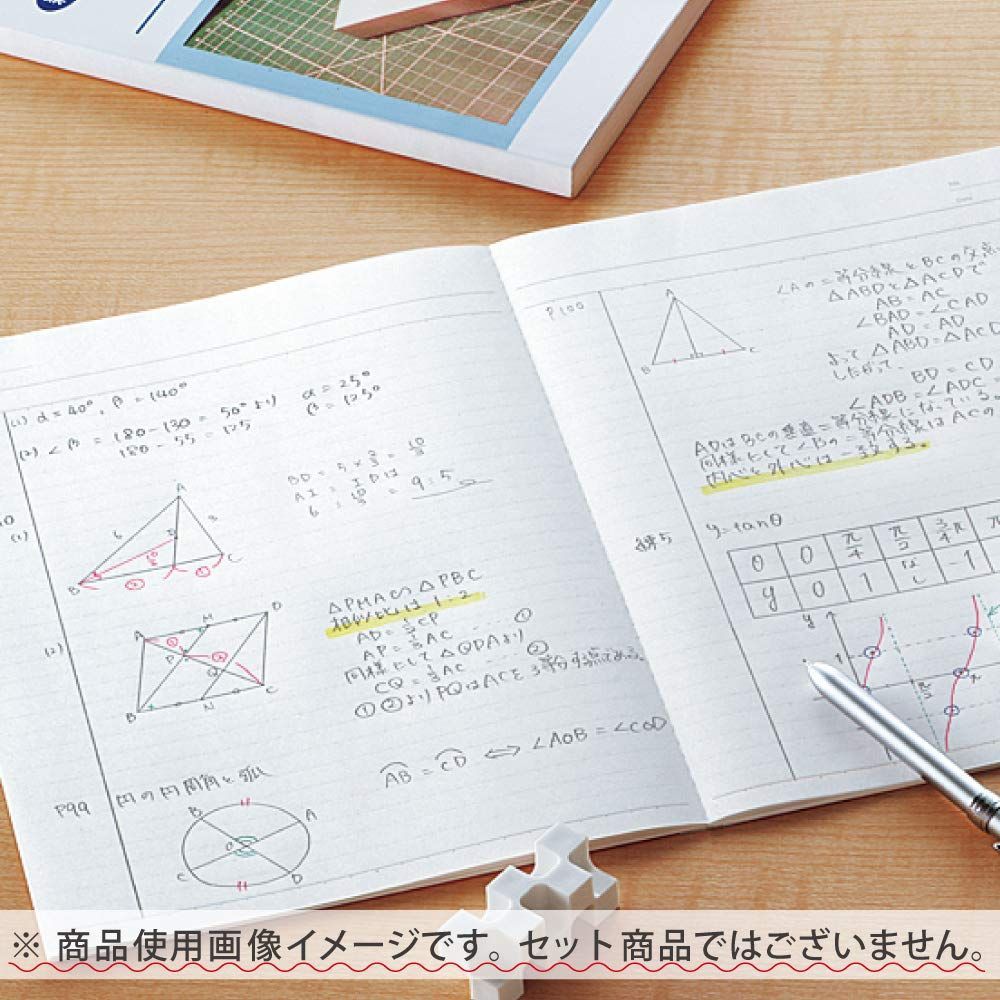 (1) α = 40°, β = 140°
(2) ∠β = 180 − 130 = 50° より α = 25°
180 − 55 = 125 β = 125°
BD = 5 ×
AI : ID は
= 9 : 5
(1)
A
6
B
C
(2)
A
M
D
P
Q
B
N
C
△PMA ∽ △PBC
相似比は 1 : 2
AP = AC ①
同様にして △QDA より
CQ = AC ②
①②より PQ は AC を 3等分する点である。
P99
円の円周角と弧
AB = CD ⟺ ∠AOB = ∠COD
B
A
O
C
D
P100
A
B
C
∠Aの二等分線とBCの交点
△ABDと△ACDで
AB = AC
∠BAD = ∠CAD
AD = AD
よって △ABD = △ACD
したがって、
BD = CD
∠ADB = ∠ADC =
ADはBCの垂直二等分線になっている。
同様にして∠Bの二等分線はACの
内心と外心は一致する。
y = tanθ
θ 0 π/4 π/2 3/4π π
y 0 1 なし −1
y
1
π/2
π
※ 商品使用画像イメージです。セット商品ではございません。